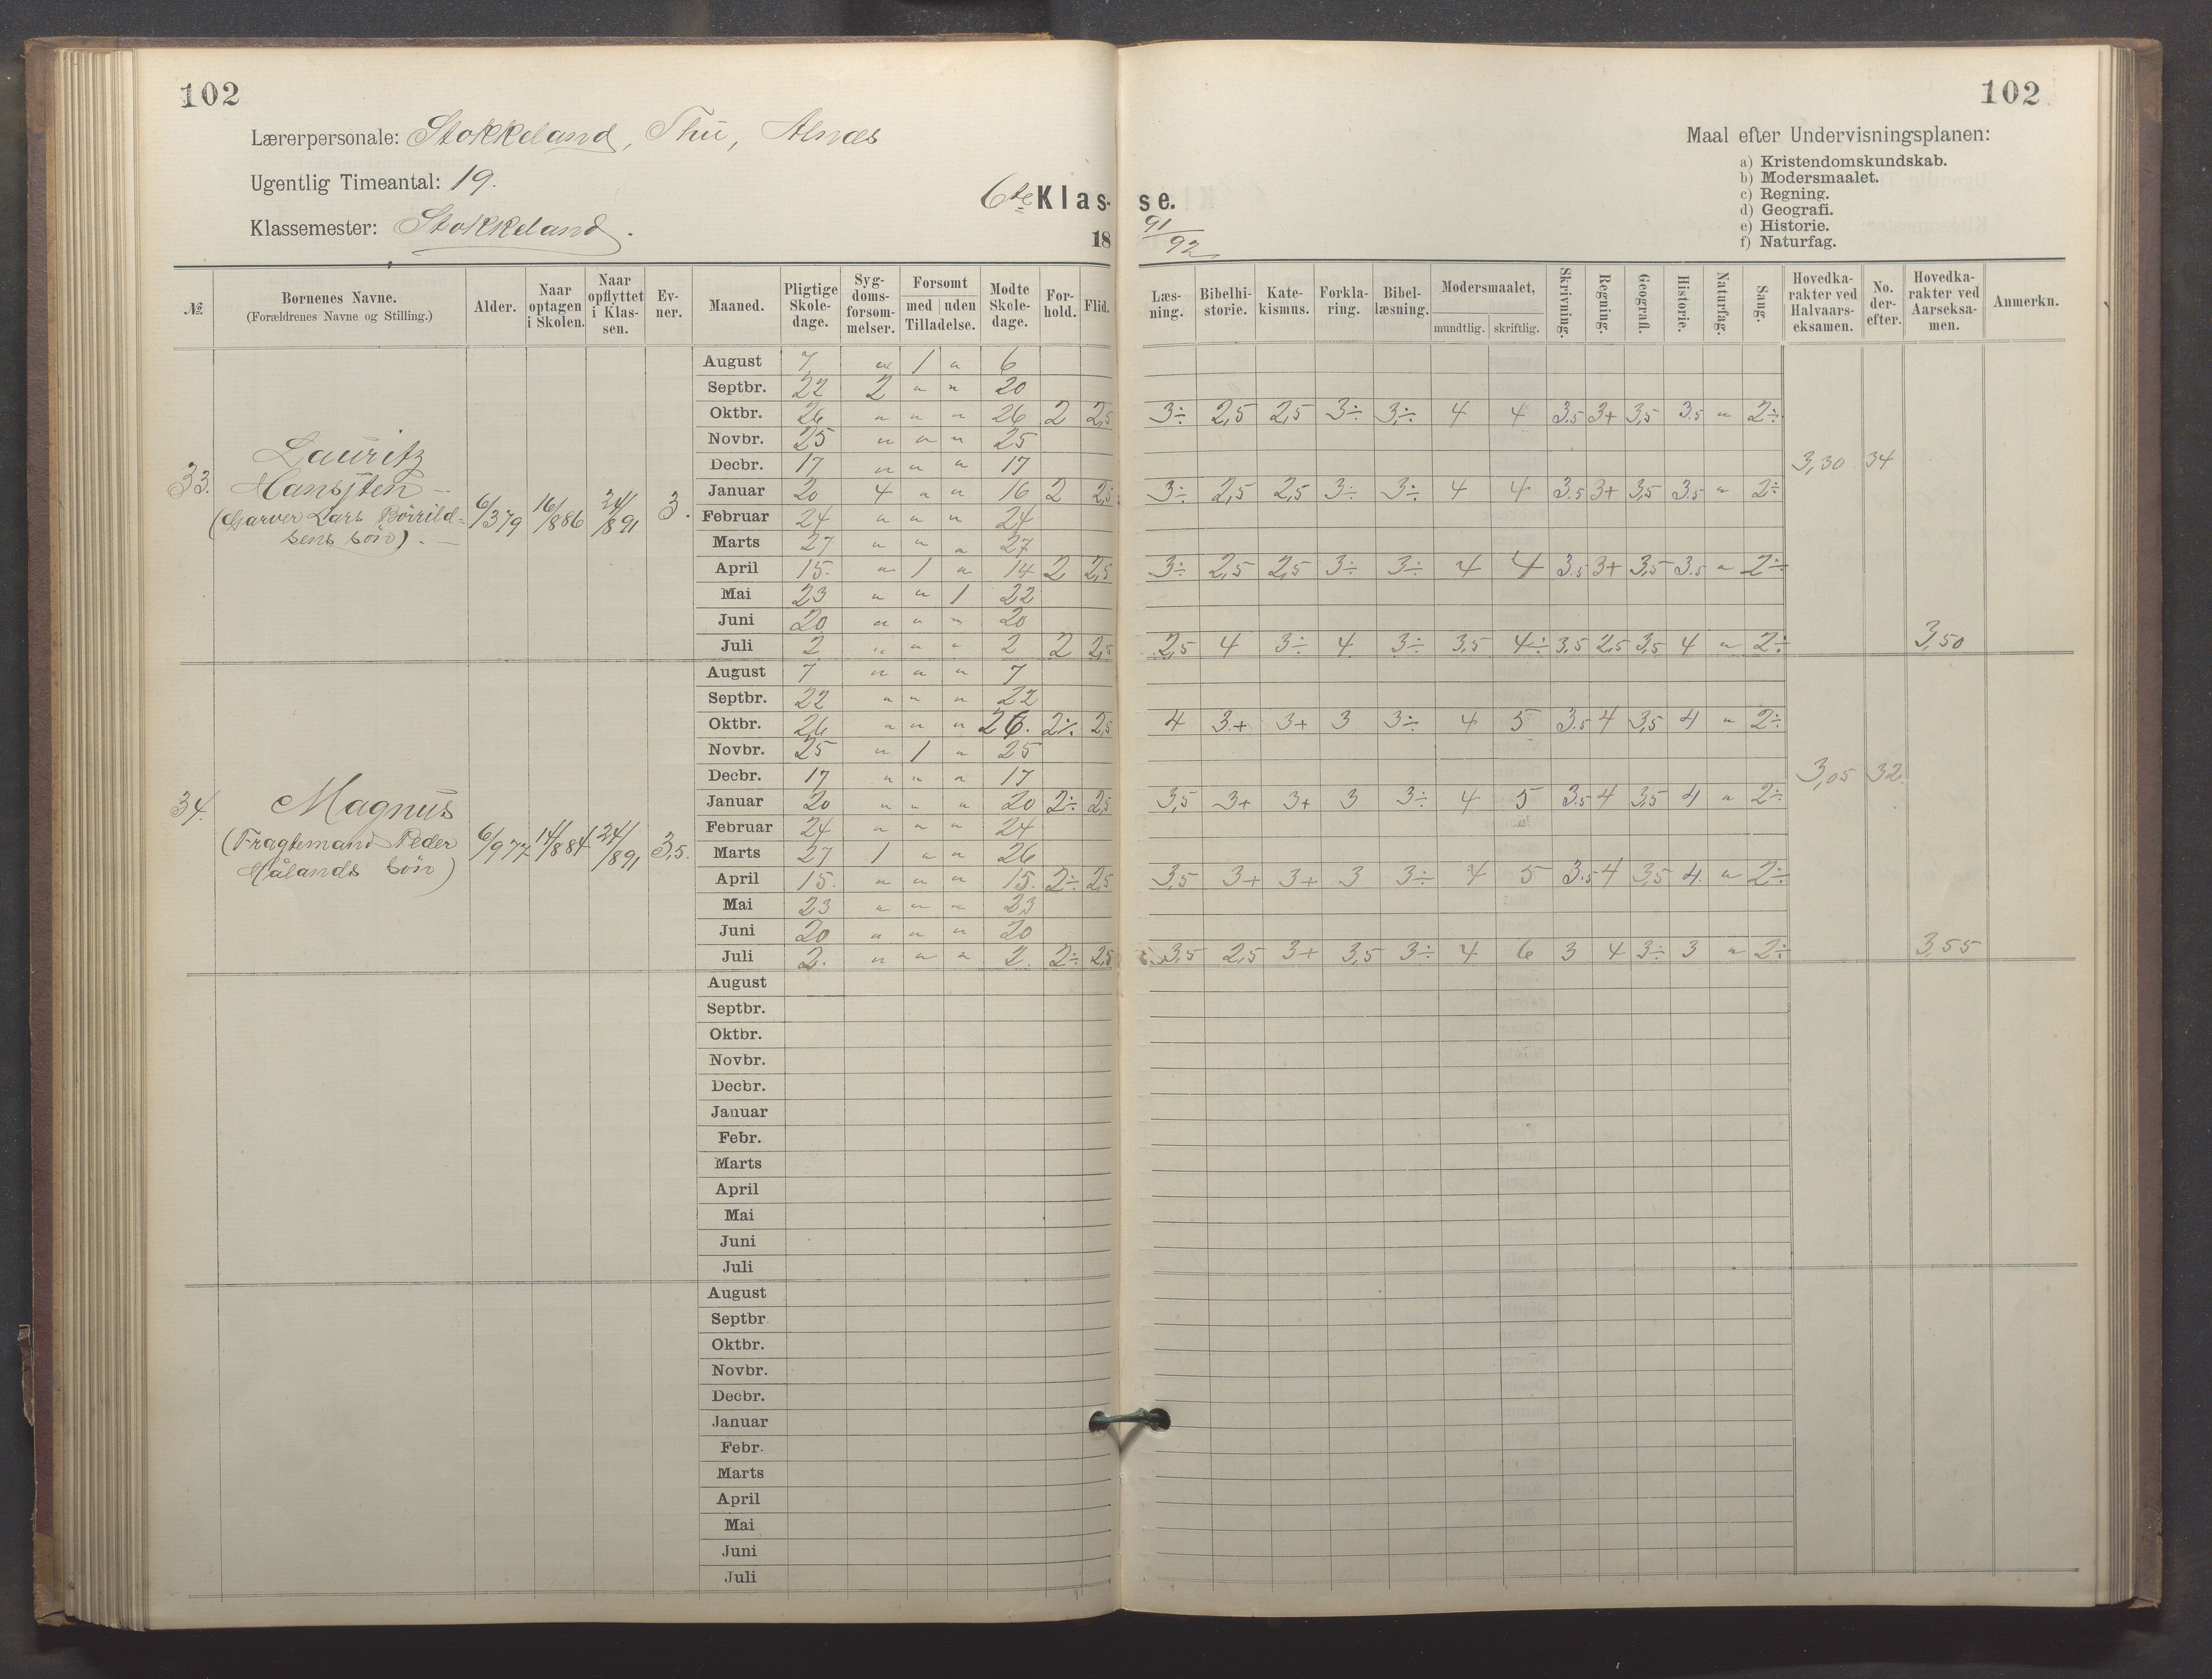 102
Lærerpersonale: Stokkeland, Thu, Alnæs
Ugentlig Timeantal: 19.
Klassemester: Stokkeland.
6te Klas-
18
№
Børnenes Navne. (Forældrenes Navne og Stilling.)
Alder.
Naar optagen i Skolen.
Naar opflyttet i Klassen.
Evner.
Maaned.
Pligtige Skoledage.
Sygdomsforsømmelser.
Forsømt med | uden Tilladelse.
Mødte Skoledage.
Forhold.
Flid.
33.
Lauritz
Hansiten –
(Garver Lars Börrild=
sens sön). –
6/3 79
16/8 86
24/8 91
3.
August 7 " 1 " 6
Septbr. 22 2 " " 20
Oktbr. 26 " " " 26 2 2,5
Novbr. 25 " " " 25
Decbr. 17 " " " 17
Januar 20 4 " " 16 2 2,5
Februar 24 " " " 24
Marts 27 " " " 27
April 15. " 1 " 14 2 2,5
Mai 23 " " 1 22
Juni 20 " " " 20
Juli 2 " " " 2 2 2,5
34.
Magnus
(Fragtemand Peder
Hålands sön)
6/9 77
14/8 84
24/8 91
3,5.
August 7 " " " 7
Septbr. 22 " " " 22
Oktbr. 26 " " " 26. 2÷ 2,5
Novbr. 25 " 1 " 25
Decbr. 17 " " " 17
Januar 20 " " " 20 2÷ 2,5
Februar 24 " " " 24
Marts 27 1 " " 26
April 15. " " " 15. 2÷ 2,5
Mai 23 " " " 23
Juni 20 " " " 20
Juli 2. " " " 2. 2÷ 2,5
August
Septbr.
Oktbr.
Novbr.
Decbr.
Januar
Febr.
Marts
April
Mai
Juni
Juli
August
Septbr.
Oktbr.
Novbr.
Decbr.
Januar
Febr.
Marts
April
Mai
Juni
Juli
102
Maal efter Undervisningsplanen:
a) Kristendomskundskab.
b) Modersmaalet.
c) Regning.
d) Geografi.
e) Historie.
f) Naturfag.
se.
91/92
Læsning.
Bibelhistorie.
Katekismus.
Forklaring.
Bibellæsning.
Modersmaalet, mundtlig. | skriftlig.
Skrivning.
Regning.
Geografi.
Historie.
Naturfag.
Sang.
Hovedkarakter ved Halvaarseksamen.
No. derefter.
Hovedkarakter ved Aarseksamen.
Anmerkn.
3÷ 2,5 2,5 3÷ 3÷ 4 4 3.5 3+ 3,5 3.5 " 2÷
3,30 34
3÷ 2,5 2,5 3÷ 3÷ 4 4 3.5 3+ 3,5 3.5 " 2÷
3÷ 2,5 2,5 3÷ 3÷ 4 4 3.5 3+ 3,5 3.5 " 2÷
2,5 4 3÷ 4 3÷ 3,5 4÷ 3,5 2,5 3,5 4 " 2÷ 3,50
4 3+ 3+ 3 3÷ 4 5 3.5 4 3,5 4 " 2÷
3,05 32.
3,5 3+ 3+ 3 3÷ 4 5 3.5 4 3,5 4 " 2÷
3,5 3+ 3+ 3 3÷ 4 5 3.5 4 3,5 4. " 2÷
3,5 2,5 3+ 3,5 3÷ 4 6 3 4 3÷ 3 " 2÷ 3,55